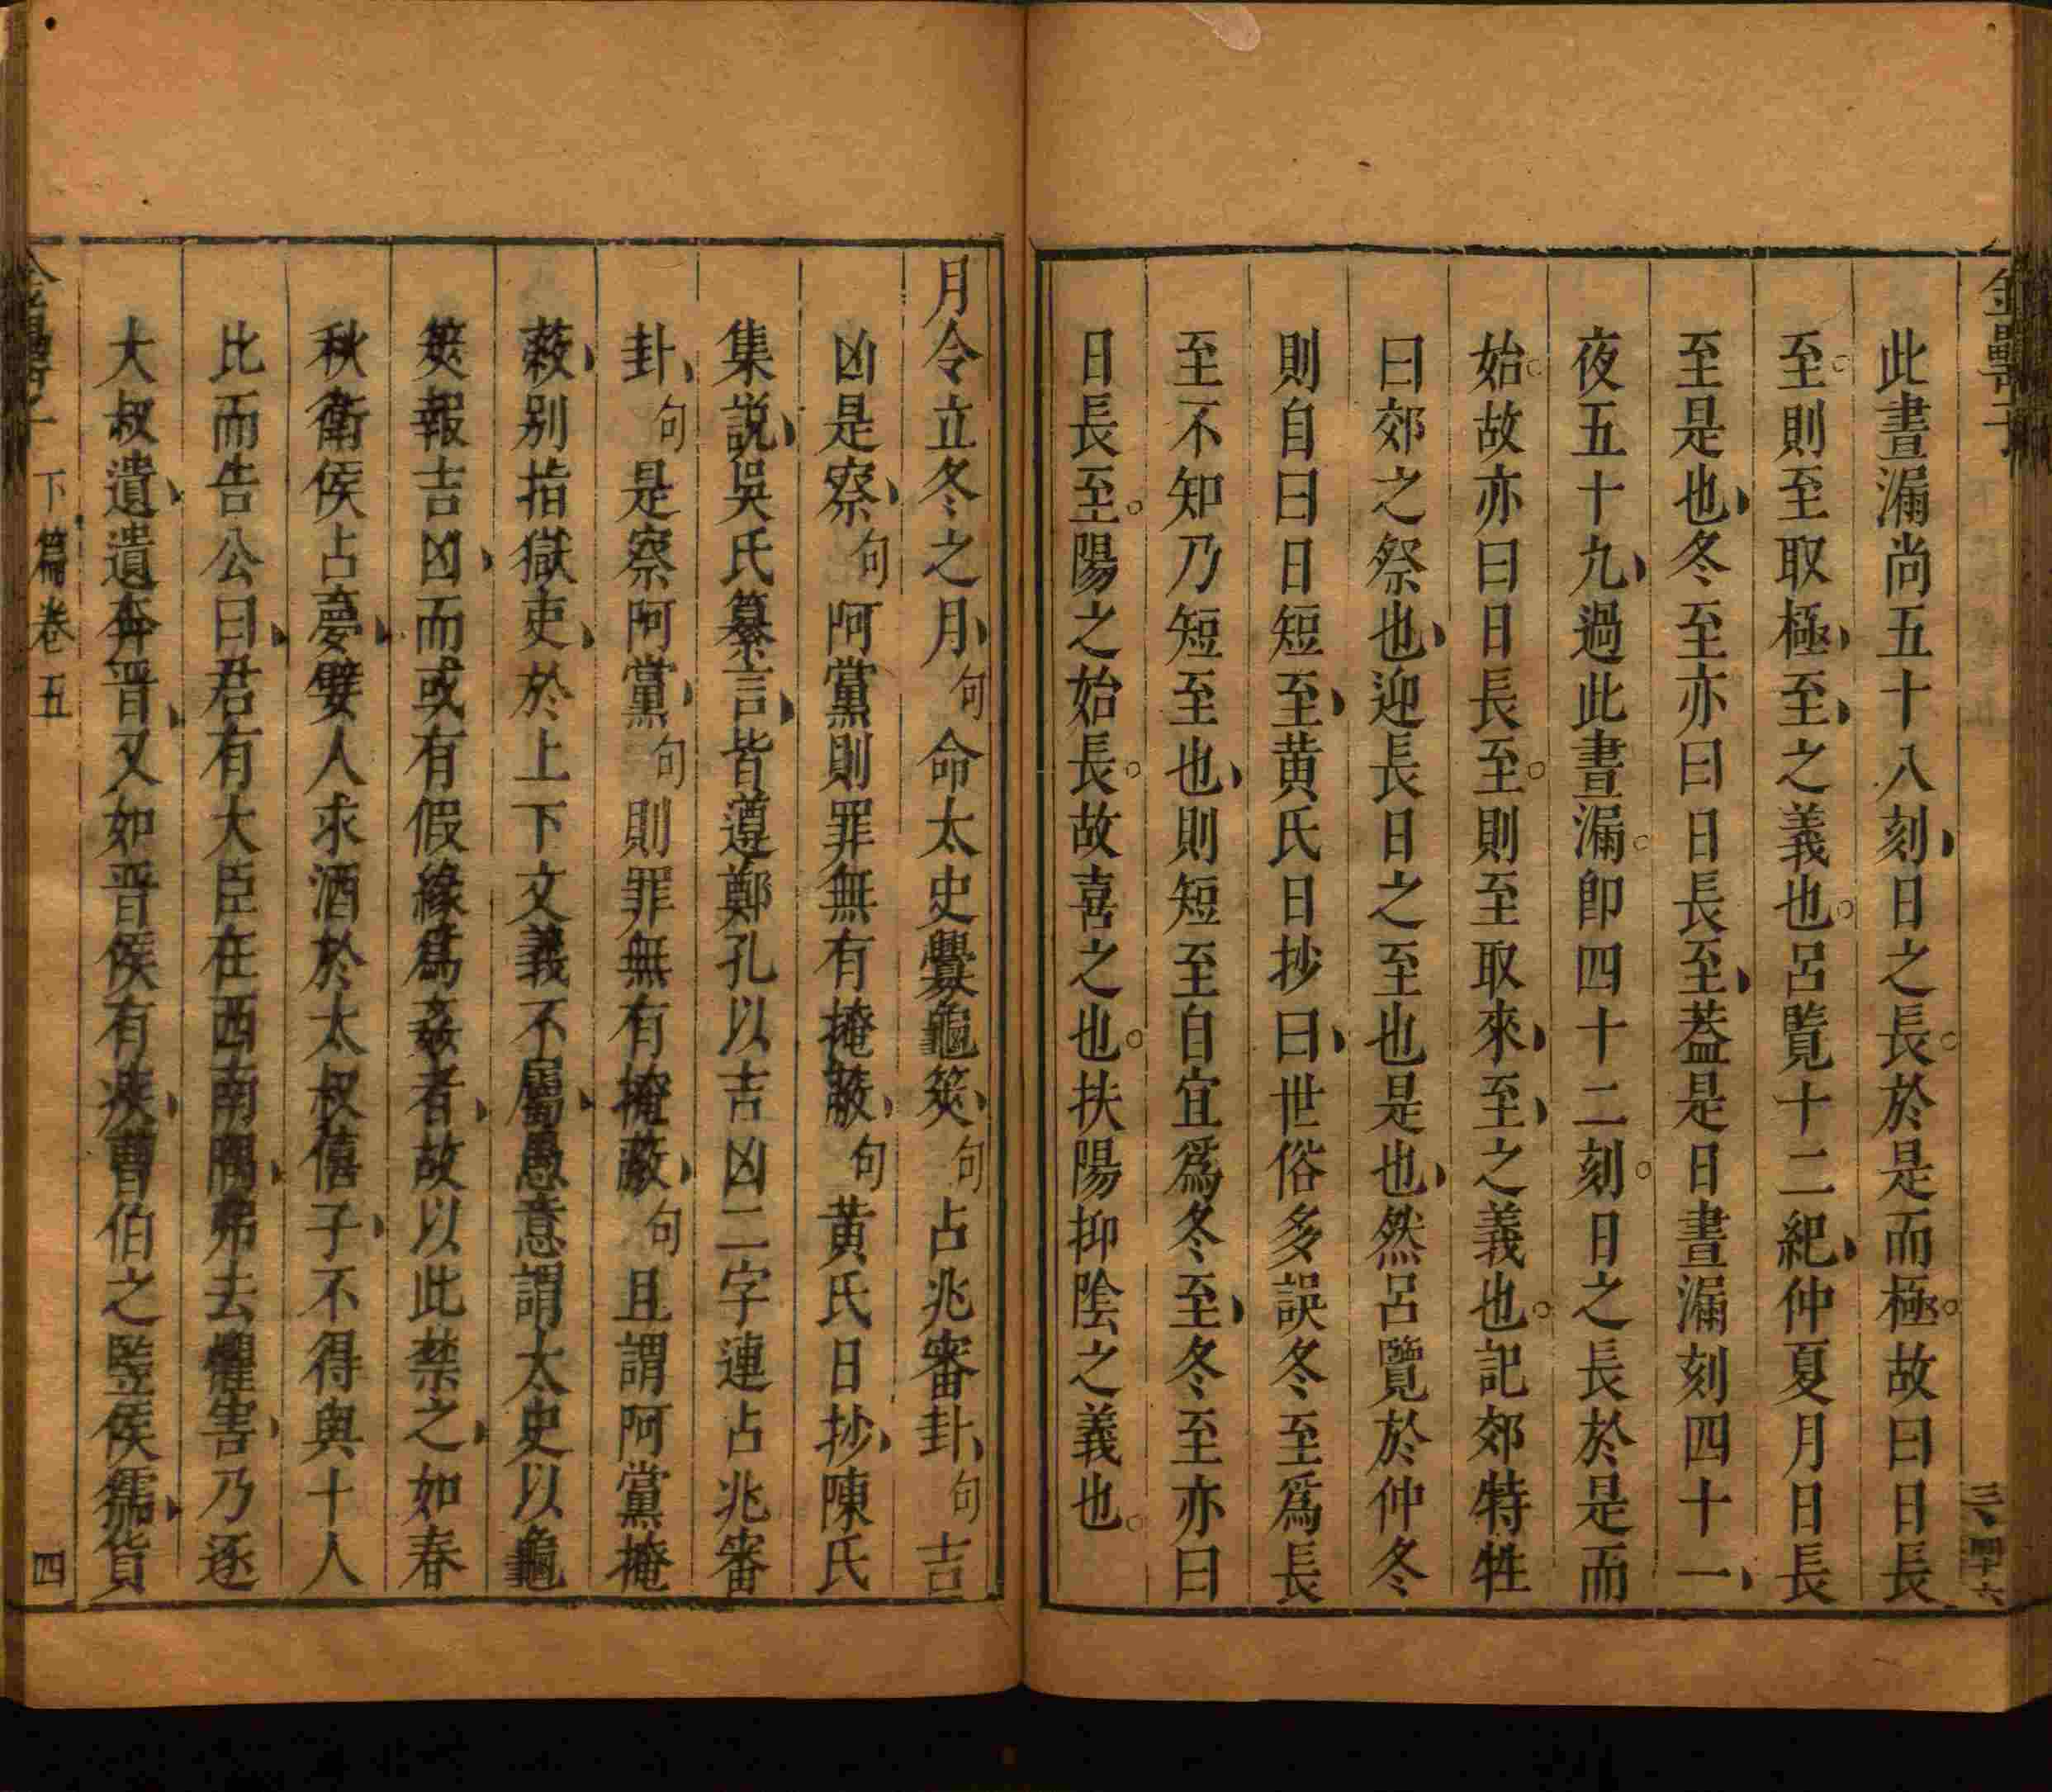 金罍子
此晝漏尚五十八刻日之長於是而極故曰日長
至則至取極至之義也呂覧十二紀仲夏月日長
至是也冬至亦曰日長至葢是日晝漏刻四十一
夜五十九過此晝漏卽四十二刻日之長於是而
始故亦曰日長至則至取來至之義也記郊特牲
曰郊之祭也迎長日之至也是也然呂覽於仲冬
則自曰日短至黄氏日抄曰世俗多誤冬至爲長
至不知乃短至也則短至自宜爲冬至冬至亦曰
日長至陽之始長故喜之也扶陽抑陰之義也
月令立冬之月句命太史釁龜筴句占兆審卦句吉
凶是察句阿黨則罪無有掩蔽句黃氏日抄陳氏
集説吳氏纂言皆遵鄭孔以吉凶二字連占兆審
卦句是察阿黨句則罪無有掩蔽句且謂阿黨掩
蔽別指獄吏於上下文義不屬愚意謂太史以龜
筴報吉凶而或有假緣爲姦者故以此禁之如春
秋衛侯占夢嬖人求酒於太叔僖子不得與十人
比而告公曰君有大臣在西南隅弗去懼害乃逐
大叔遺遺奔晋又如晋侯有疾曹伯之豎侯獳貨
下篇卷五
四